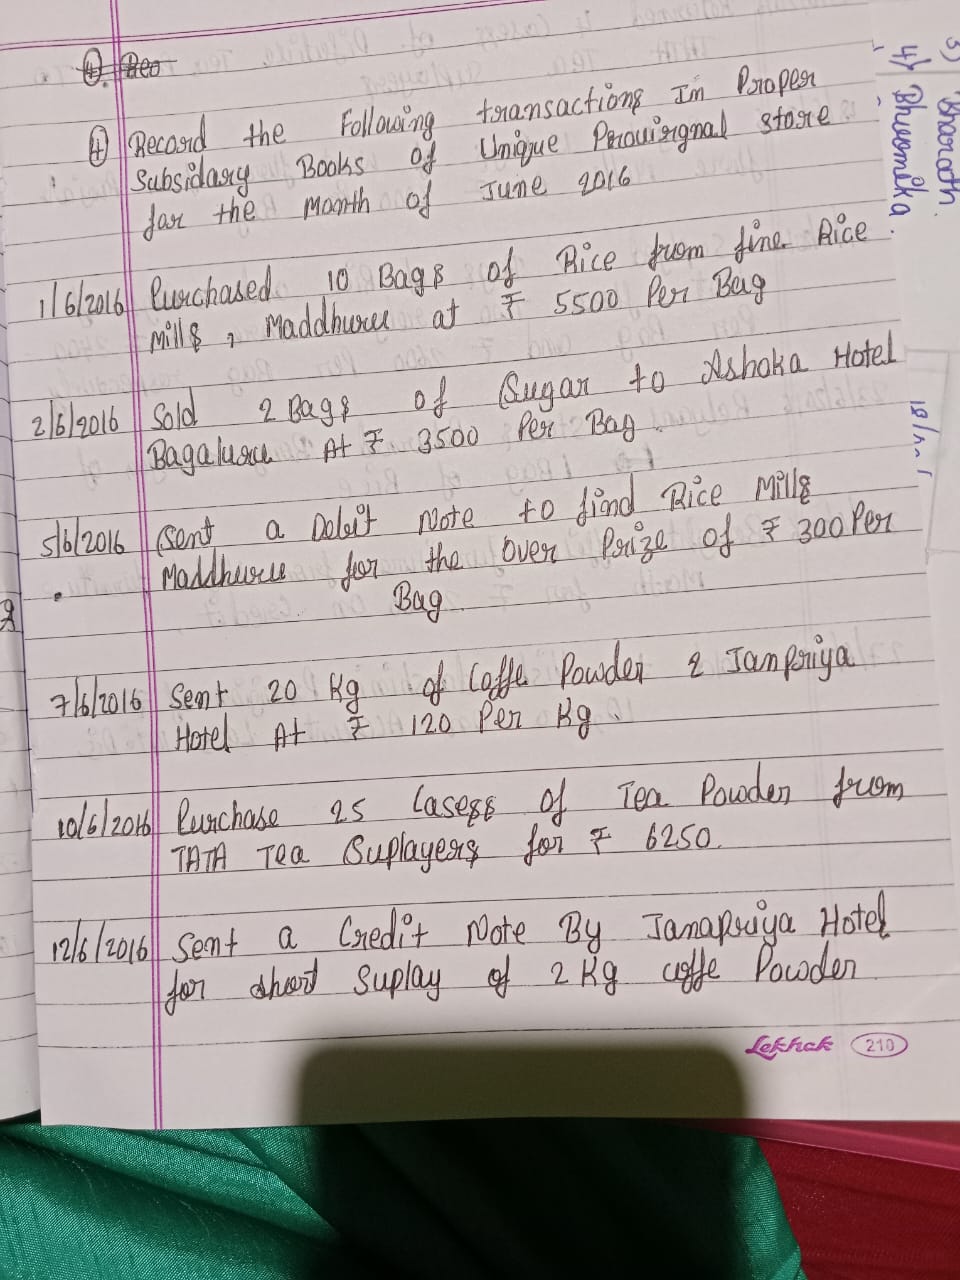 ④. Reo
④ Record the Following transactions In Proper
Subsidary Books of Unique Provisignal store
for the Month of June 2016
1/6/2016 Purchased 10 Bags of Rice from fine Rice
Mills, Maddhuru at ₹ 5500 Per Bag
2/6/2016 Sold 2 Bags of Sugar to Ashoka Hotel
Bagaluru At ₹ 3500 Per Bag.
5/6/2016 Sent a Debit Note to find Rice Mills
Maddhuru for the over Prize of ₹ 300 Per
Bag.
7/6/2016 Sent 20 Kg of Coffe Powder 2 Janpriya
Hotel At ₹ 120 Per Kg.
10/6/2016 Purchase 25 Casess of Tea Powder from
TATA Tea Suplayers for ₹ 6250.
12/6/2016 Sent a Credit Note By Janapriya Hotel
for short Suplay of 2 Kg coffe Powder
Lekhak 210
3) Bharath.
4) Bhoomika.